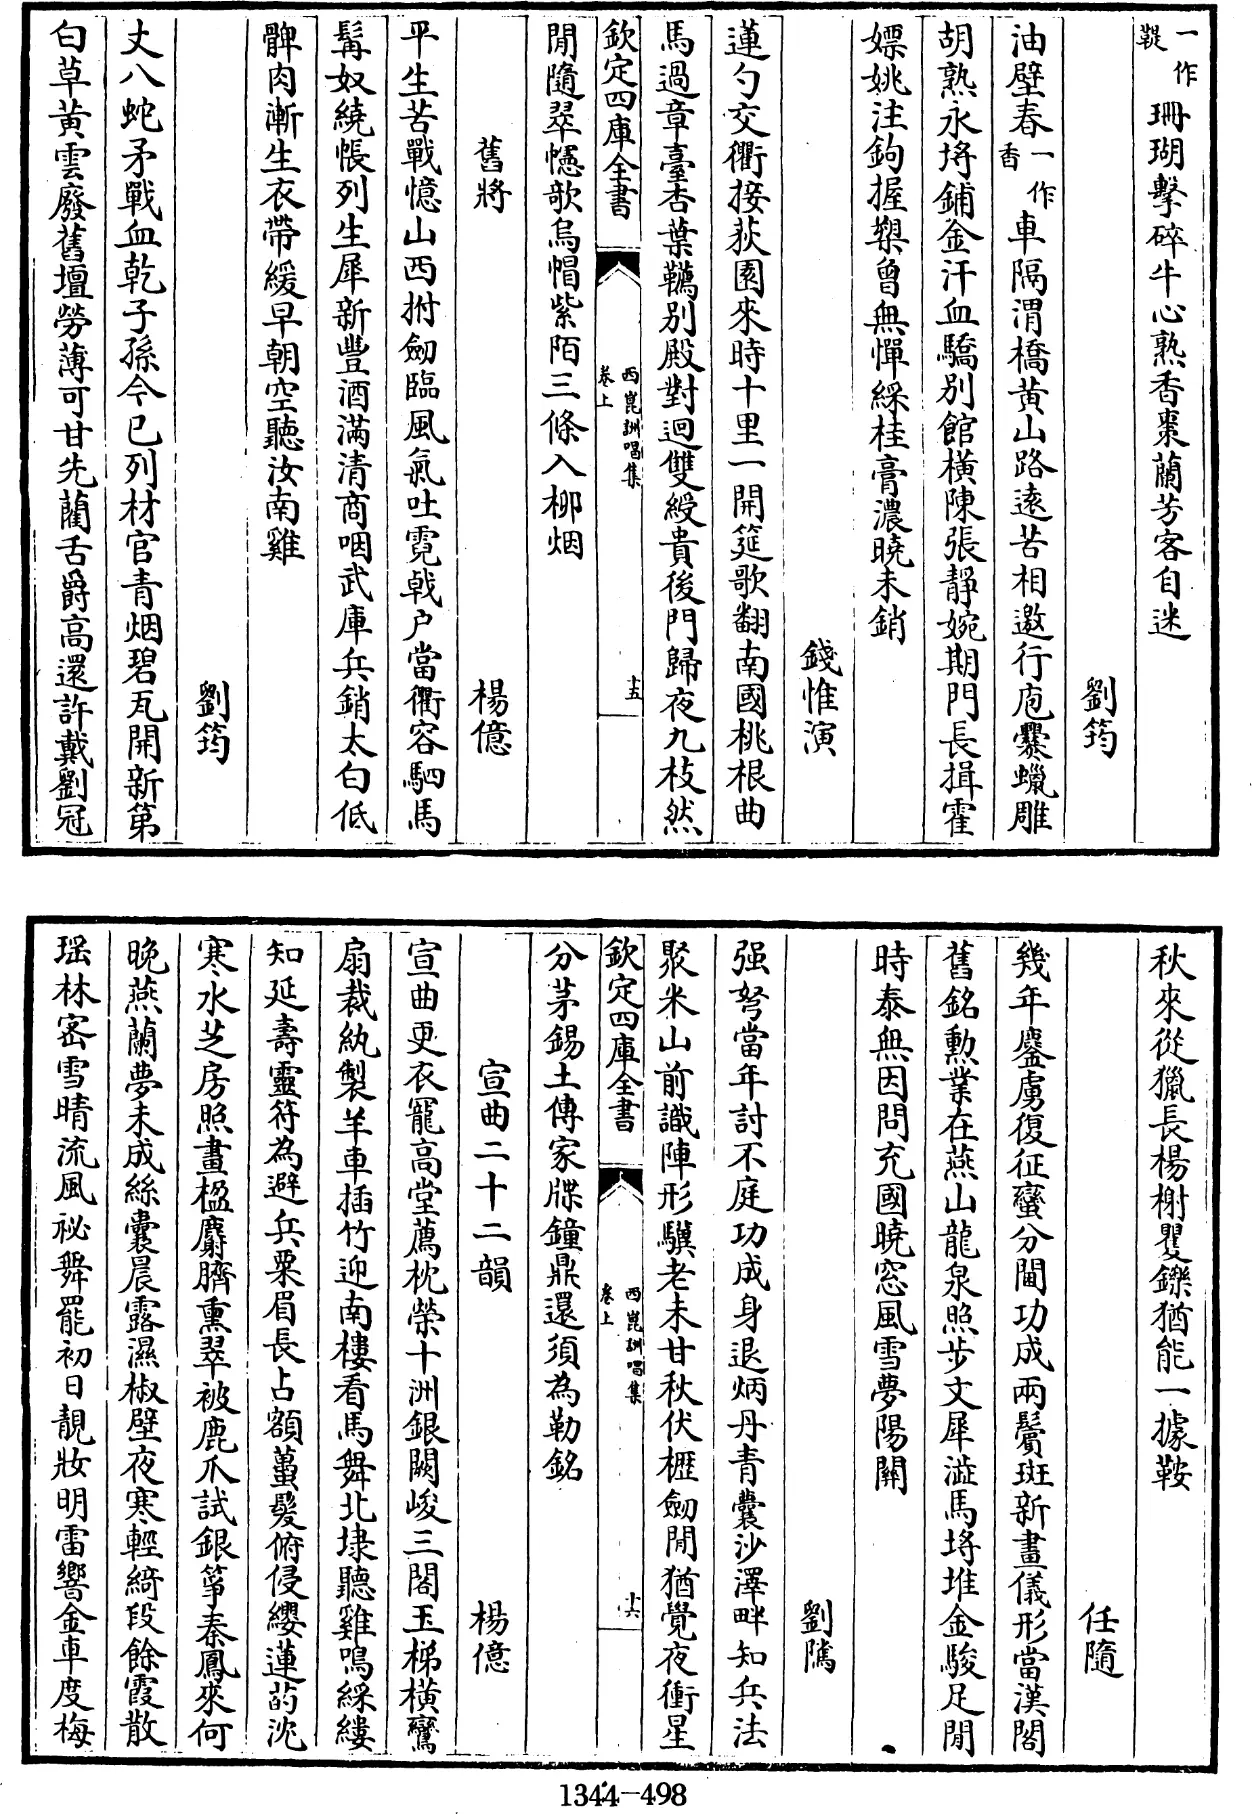 一作鞮珊瑚擊碎牛心熟香棗蘭芳客自迷
劉筠
油壁春一作香車隔渭橋黄山路遠苦相邀行庖爨蠟雕
胡熟永埒鋪金汗血驕別館橫陳張靜婉期門長揖霍
嫖姚注鉤握槊曾無憚綵桂膏濃曉未銷
錢惟演
蓮勺交衢接荻園來時十里一開筵歌翻南國桃根曲
馬過章臺杏葉韉別殿對迴雙綬貴後門歸夜九枝然
欽定四庫全書
西崑詶唱集
卷上
十五
閒隨翠幰歌烏帽紫陌三條入柳烟
舊將
楊億
平生苦戰憶山西拊劒臨風氣吐霓戟户當衢容駟馬
髯奴繞帳列生犀新豐酒滿清商咽武庫兵銷太白低
髀肉漸生衣帶緩早朝空聽汝南雞
劉筠
丈八蛇矛戰血乾子孫今已列材官青烟碧瓦開新第
白草黄雲廢舊壇勞薄可甘先藺舌爵高還許戴劉冠
秋來從獵長楊榭矍鑠猶能一據鞍
任隨
幾年鏖虜復征蠻分閫功成兩鬢斑新畫儀形當漢閣
舊銘勲業在燕山龍泉照步文犀澁馬埒堆金駿足閒
時泰無因問充國曉窓風雪夢陽關
劉隲
强弩當年討不庭功成身退炳丹青囊沙澤畔知兵法
聚米山前識陣形驥老未甘秋伏櫪劒閒猶覺夜衝星
欽定四庫全書
西崑詶唱集
卷上
十六
分茅錫土傳家牒鐘鼎還須為勒銘
宣曲二十二韻
楊億
宣曲更衣寵高堂薦枕榮十洲銀闕峻三閣玉梯橫鸞
扇裁紈製羊車插竹迎南樓看馬舞北埭聽雞鳴綵縷
知延壽靈符為避兵粟眉長占額蠆髮俯侵纓蓮菂沈
寒水芝房照畫楹麝臍熏翠被鹿爪試銀箏秦鳳來何
晚燕蘭夢未成絲囊晨露濕椒壁夜寒輕綺段餘霞散
瑶林宻雪晴流風祕舞罷初日靚妝明雷響金車度梅
1344-498